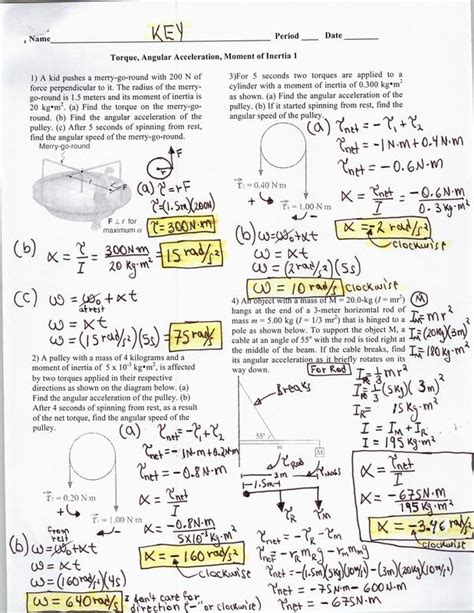 Name KEY Period Date
Torque, Angular Acceleration, Moment of Inertia 1
1) A kid pushes a merry-go-round with 200 N of
force perpendicular to it. The radius of the merry-
go-round is 1.5 meters and its moment of inertia is
20 kg•m². (a) Find the torque on the merry-go-
round. (b) Find the angular acceleration of the
pulley. (c) After 5 seconds of spinning from rest,
find the angular speed of the merry-go-round.
Merry-go-round
r
F
F ⊥ r for
maximum α
r
F
(a) τ=rF
τ=(1.5m)(200N)
τ=300N·m
(b) α = τ/I = 300N·m/20 kg·m² = 15 rad/s²
(c) ω = ω₀ + αt
at rest
ω = αt
ω = (15 rad/s²)(5s) = 75 rad/s
2) A pulley with a mass of 4 kilograms and a
moment of inertia of 5 x 10⁻³ kg•m², is affected
by two torques applied in their respective
directions as shown on the diagram below. (a)
Find the angular acceleration of the pulley. (b)
After 4 seconds of spinning from rest, as a result
of the net torque, find the angular speed of the
pulley.
(a) τnet = -τ₁+τ₂
τnet = -1N·m+0.2N·m
τnet = -0.8N·m
τ₂ = 0.20 N·m
τ₁ = 1.00 N·m
α = τnet/I
α = -0.8N·m/5x10⁻³kg·m²
α = -160 rad/s²
clockwise
from rest
(b) ω = ω₀ + αt
ω = αt
ω = (160 rad/s²)(4s)
ω = 640 rad/s
don't care for
direction ("-" or clockwise)
3)For 5 seconds two torques are applied to a
cylinder with a moment of inertia of 0.300 kg•m²
as shown. (a) Find the angular acceleration of the
pulley. (b) If it started spinning from rest, find the
angular speed of the pulley.
(a) τnet = -τ₁+τ₂
τnet = -1N·m+0.4N·m
τnet = -0.6N·m
τ₂ = 0.40 N·m
τ₁ = 1.00 N·m
α = τnet/I = -0.6N·m/0.3kg·m²
α = -2 rad/s²
clockwise
(b) ω = ω₀ + αt
ω = αt
ω = (2rad/s²)(5s)
ω = 10 rad/s clockwise
4) An object with a mass of M = 20.0-kg (I = mr²)
hangs at the end of a 3-meter horizontal rod of
mass m = 5.00 kg (I = 1/3 mr²) that is hinged to a
pole as shown below. To support the object M, a
cable at an angle of 55° with the rod is tied right at
the middle of the beam. If the cable breaks, find
its angular acceleration as it briefly rotates on its
way down.
M
Im = mr²
Im = (20kg)(3m)²
Im = 180kg·m²
For Rod
IR = 1/3 mr²
IR = 1/3(5kg)(3m)²
IR = 15kg·m²
I = IM + IR
I = 195kg·m²
Breaks
55°
m
M
3m
1.5m
τRod
τmass
τR
τM
α = τnet/I
α = -675N·m/195kg·m²
α = -3.46 rad/s²
clockwise
τnet = -τR - τM
τnet = -rRmRg - rMmMg
τnet = -(1.5m)(5kg)(10m/s²) - (3m)(20kg)(10m/s²)
τnet = -75N·m - 600N·m
τnet = -675N·m